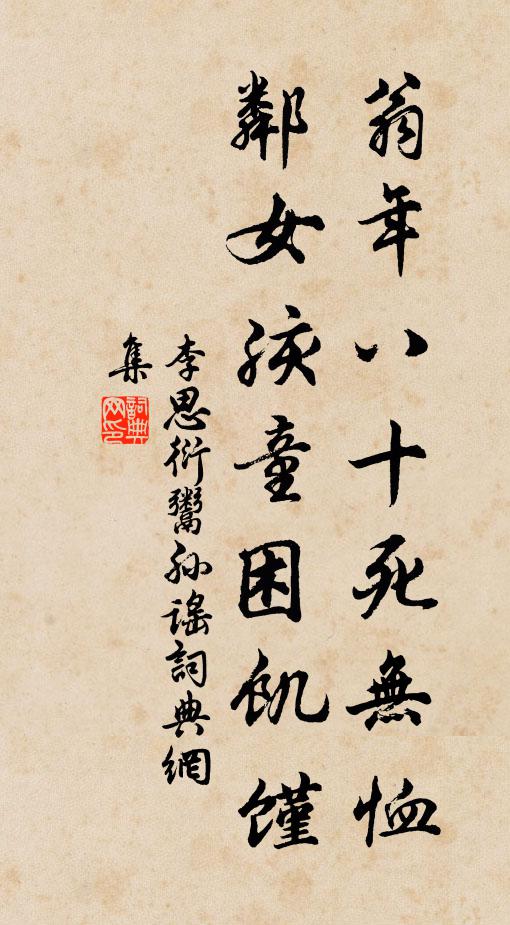 翁年八十死無恤
鄰女孩童困飢饉
李思衍鬻孫謠詞典網
集
詞典網印